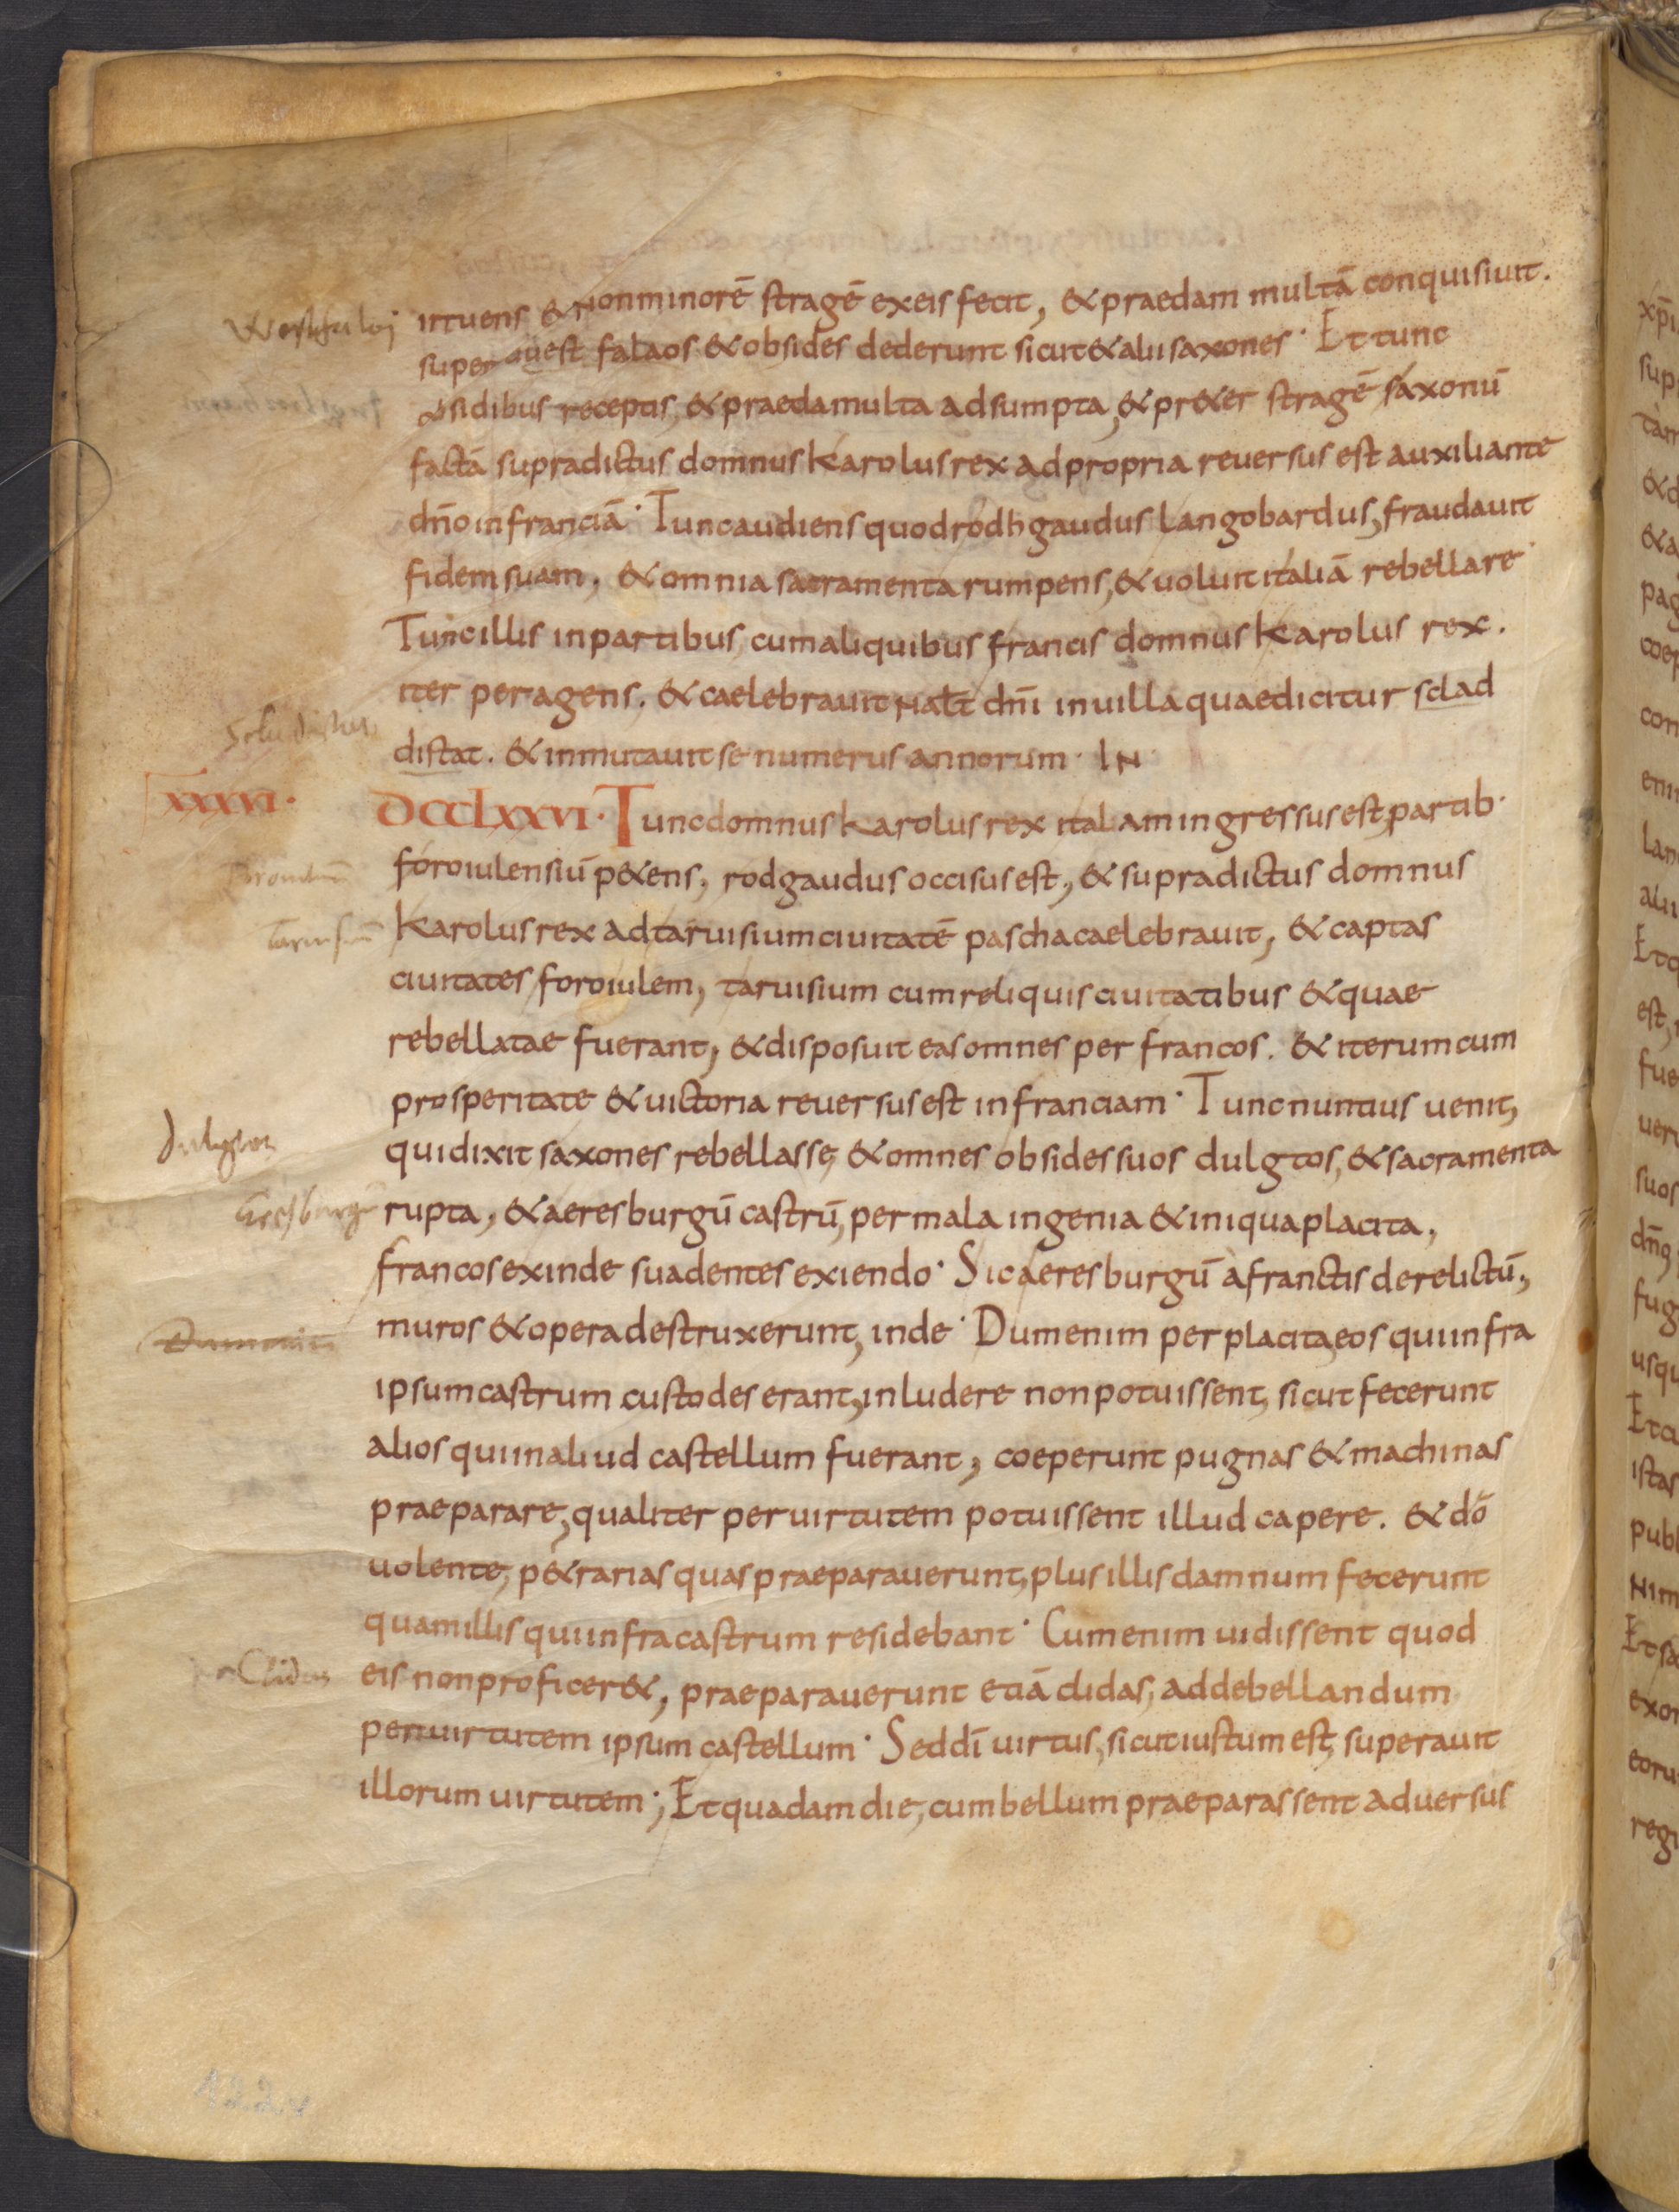 Westfaloj
irruens & non minorē stragē ex eis fecit, & praedam multā conquisiuit.
super uuestfalaos & obsides dederunt sicut & alii saxones· Et tunc
obsidibus receptis, & praeda multa adsumpta, & pr&er stragē saxonū
factā supradictus domnus karolus rex ad propria reuersus est auxiliante
dn̄o in franciā· Tunc audiens quod rodhgaudus langobardus, fraudauit
fidem suam, & omnia sacramenta rumpens, & uoluit italiā rebellare·
Tunc illis in partibus cum aliquibus francis domnus karolus rex.
iter peragens. & caelebrauit nat̄ dn̄i in uilla quae dicitur sclad
distat. & inmutauit se numerus annorum· IN
XXXVI·
DCCLXXVI· Tunc domnus karolus rex italiam ingressus est, partib·
foroiulensiū p&ens, rodgaudus occisus est, & supradictus domnus
Taruisiū
karolus rex ad taruisium ciuitatē pascha caelebrauit, & captas
ciuitates foroiulem, taruisium cum reliquis ciuitatibus & quae
rebellatae fuerant, & disposuit eas omnes per francos. & iterum cum
prosperitate & uictoria reuersus est in franciam· Tunc nuntius uenit,
Dulgtos
qui dixit saxones rebellasse, & omnes obsides suos dulgtos, & sacramenta
Eresburgū
rupta, & aeresburgū castrū, per mala ingenia & iniqua placita,
francos exinde suadentes exiendo· Sic aeresburgū a franctis derelictū,
Dumenim
muros & opera destruxerunt, inde· Dumenim per placita, eos qui infra
ipsum castrum custodes erant, inludere non potuissent, sicut fecerunt
alios qui in aliud castellum fuerant, coeperunt pugnas & machinas
praeparare, qualiter per uirtutem potuissent illud capere. & dō
uolente, p&rarias quas praeparauerunt, plus illis damnum fecerunt
quam illis qui infra castrum residebant· Cum enim uidissent quod
Clidas
eis non proficer&, praeparauerunt etiā clidas, ad debellandum
per uirtutem ipsum castellum· Sed dī uirtus, sicut iustum est, superauit
illorum uirtutem; Et quadam die, cum bellum praeparassent aduersus
122v